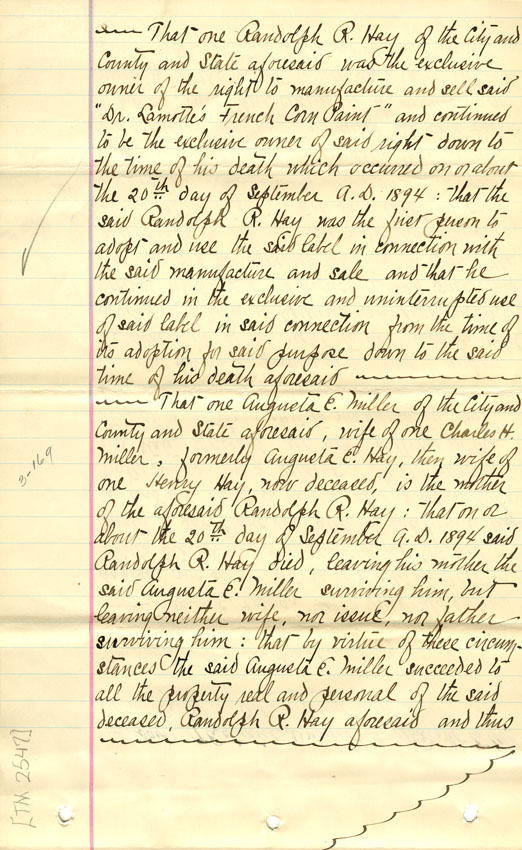 That one Randolph R. Hay of the City and
County and State aforesaid was the exclusive
owner of the right to manufacture and sell said
"Dr. Lamotte's French Corn Paint" and continued
to be the exclusive owner of said right down to
the time of his death which occurred on or about
the 20th day of September A.D. 1894: that the
said Randolph R. Hay was the first person to
adopt and use the said label in connection with
the said manufacture and sale and that he
continued in the exclusive and uninterrupted use
of said label in said connection from the time of
its adoption for said purpose down to the said
time of his death aforesaid
That one Augusta E. Miller of the City and
County and State aforesaid, wife of one Charles H.
Miller, formerly Augusta E. Hay, then wife of
one Henry Hay, now deceased, is the mother
of the aforesaid Randolph R. Hay: that on or
about the 20th day of September A.D. 1894 said
Randolph R. Hay died, leaving his mother the
said Augusta E. Miller surviving him, but
leaving neither wife, nor issue, nor father
surviving him: that by virtue of these circum-
stances the said Augusta E. Miller succeeded to
all the property real and personal of the said
deceased, Randolph R. Hay aforesaid and thus
3-169
[TM 2547]